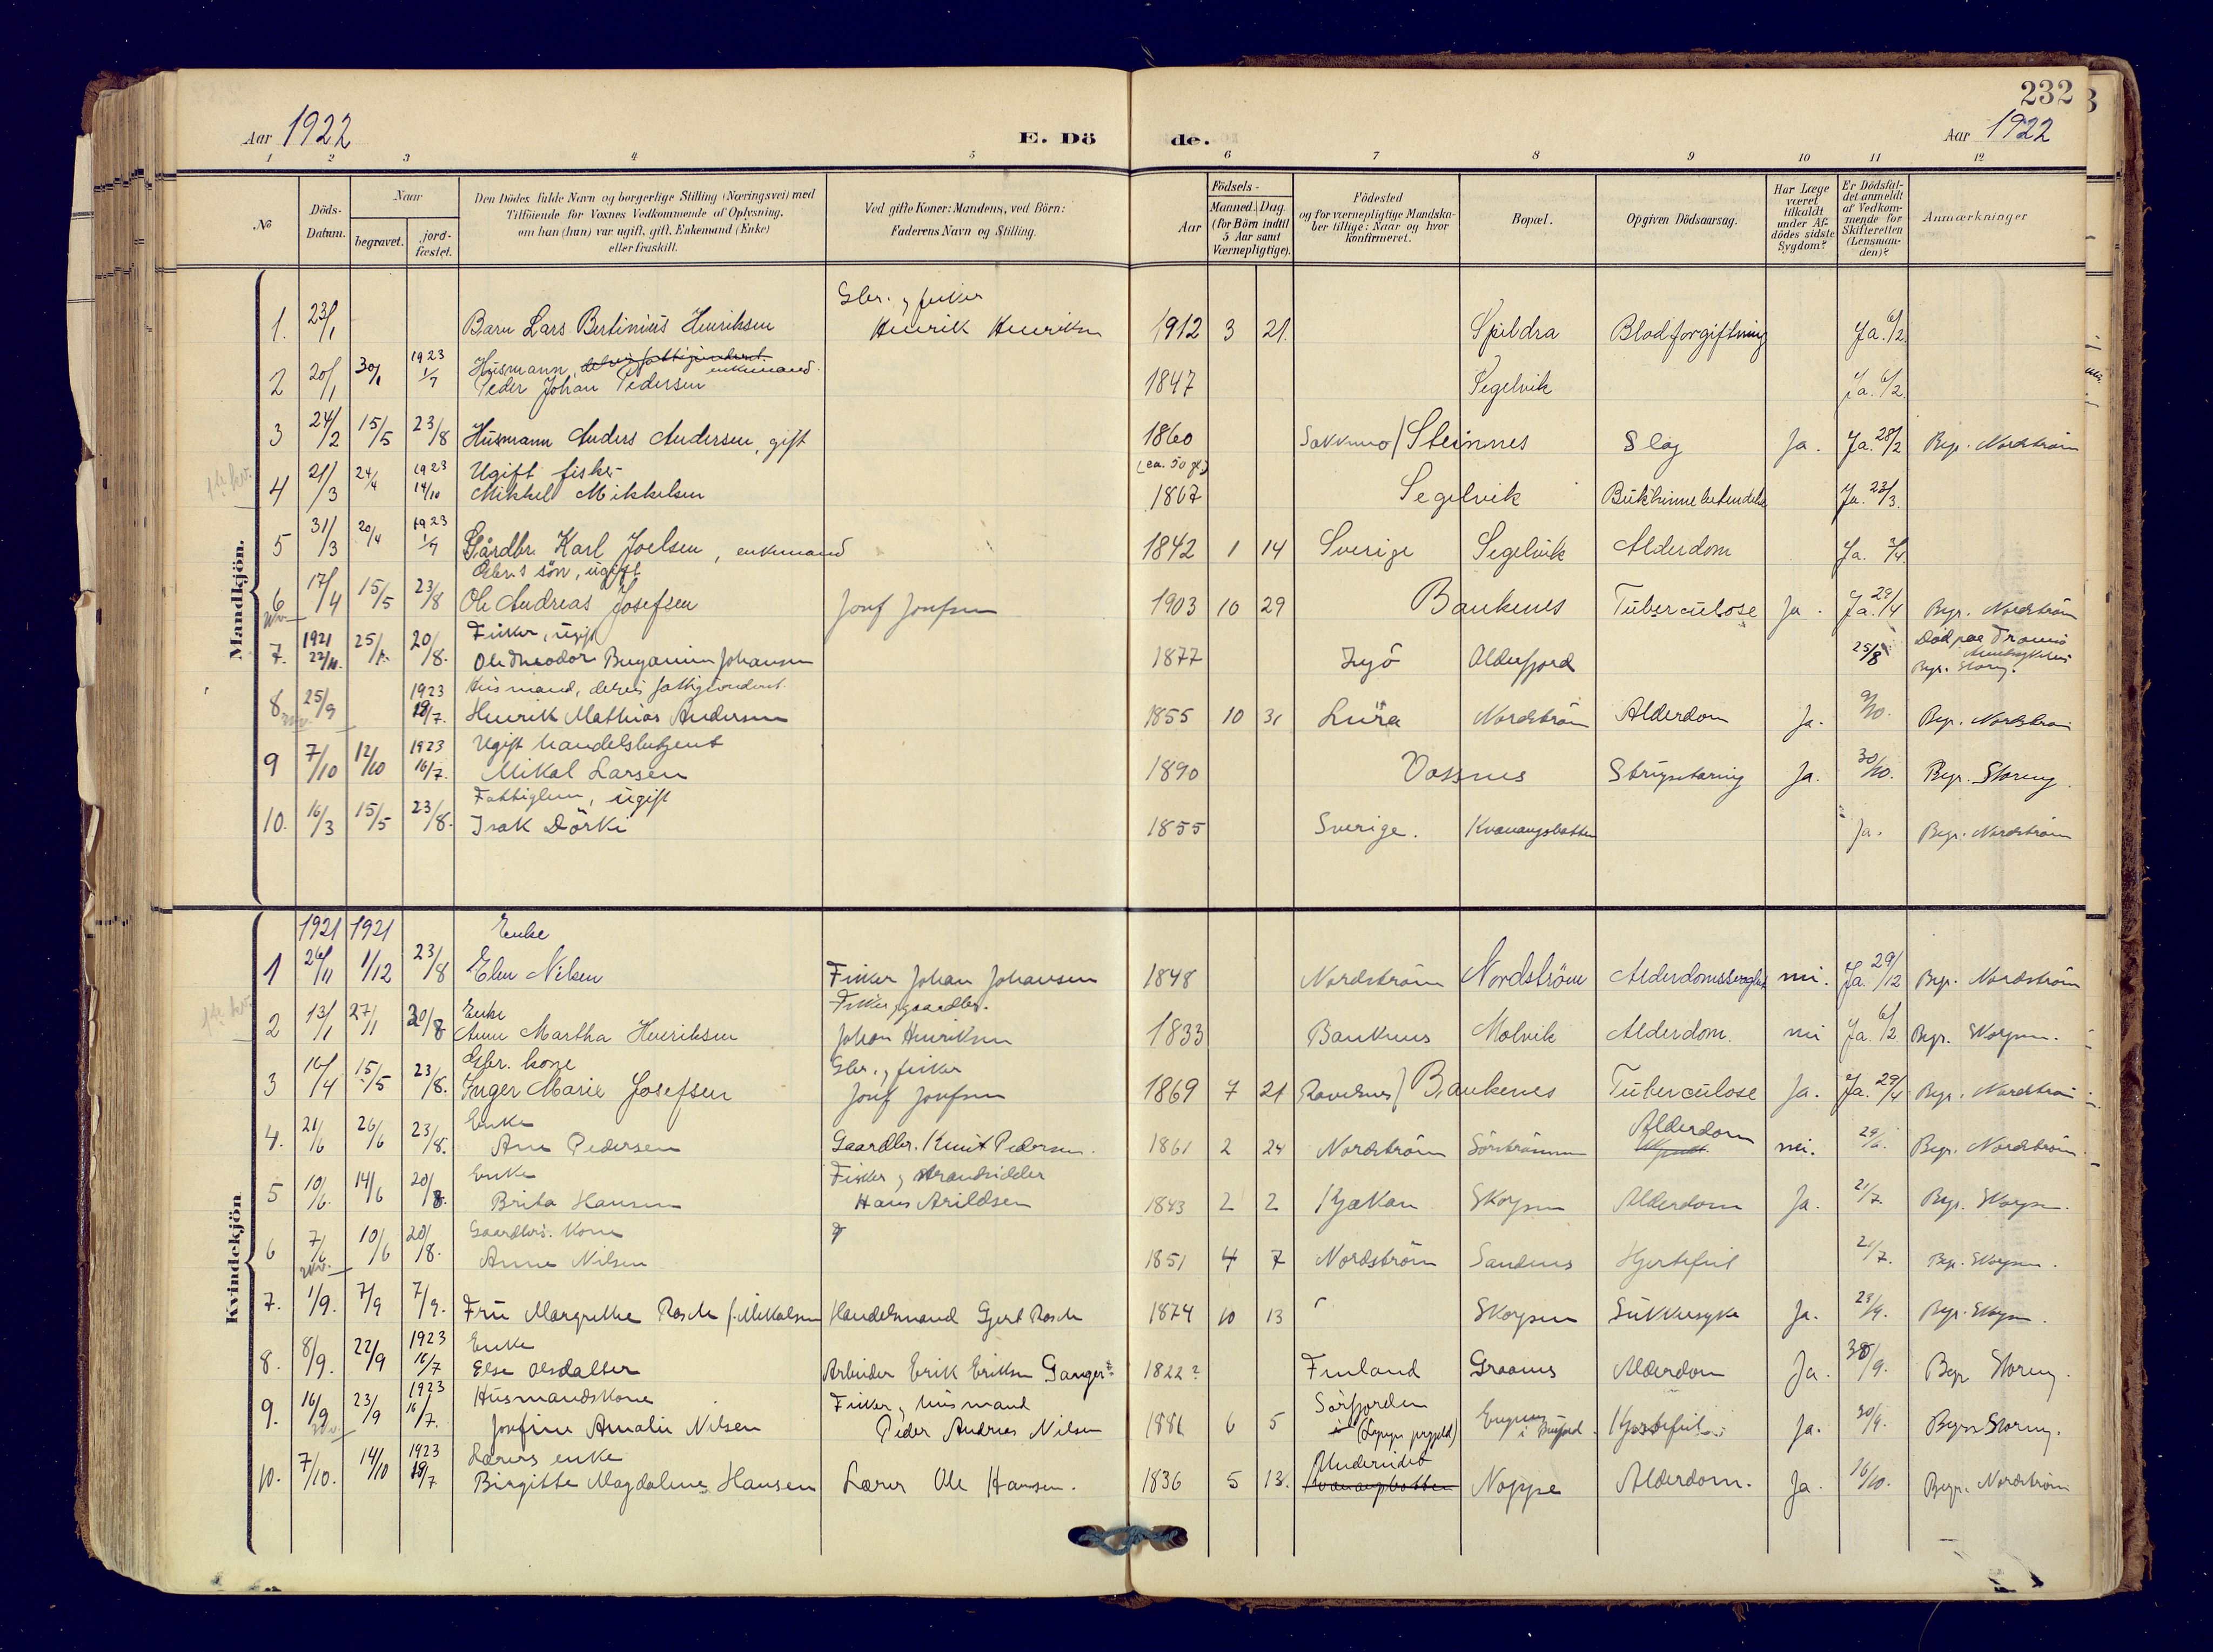 232
Aar 1922
E. Dö de.
Aar 1922
1 2 3 4 5 6 7 8 9 10 11 12
No
Döds-Datum.
Naar
begravet. jord-fæstet.
Den Dödes fulde Navn og borgerlige Stilling (Næringsvei) med
Tilföiende for Voxnes Vedkommende af Oplysning,
om han (hun) var ugift, gift, Enkemand (Enke)
eller fraskilt.
Ved gifte Koner: Mandens, ved Börn:
Faderens Navn og Stilling.
Aar
Födsels-
Maaned. Dag.
(for Börn indtil
5 Aar samt
Værnepligtige).
Födested
og for værnepligtige Mandska-
ber tillige: Naar og hvor
konfirmeret.
Bopæl.
Opgiven Dödsaarsag.
Har Læge
været
tilkaldt
under Af-
dödes sidste
Sygdom?
Er Dödsfal-
det anmeldt
af Vedkom-
mende for
Skifteretten
(Lensman-
den)?
Anmærkninger
Mandkjön.
Gbr. , fisker
1. 23/1 Barn Lars Bertinius Henriksen Henrik Henriksen 1912 3 21. Spildra Blodforgiftning Ja. 6/2.
1923 Husmann, enkemand.
2 20/1 30/1 1/7 Peder Johan Pedersen 1847 Segelvik Ja. 6/2.
3 24/2 15/5 23/8 Husmann Anders Andersen, gift 1860 Sakkemo / Steinnes Slag Ja. Ja. 28/2 Begr. Nordström
1923 Ugift fisker (ca. 50 gl.)
4 21/3 24/4 14/10 Mikkel Mikkelsen 1867 Segelvik Bukhinnebetendelse Ja. 23/3.
1923
5 31/3 20/4 1/7 Gårdbr. Karl Joelsen, enkemand 1842 1 14 Sverige Segelvik Alderdom Ja. 3/4.
Gbr.s sön, ugift
6 17/4 15/5 23/8 Ole Andreas Josefsen Josef Josefsen 1903 10 29 Baukenes Tuberculose Ja. Ja. 29/4 Begr. Nordström
1921 Fisker, ugift Död paa Tromsö
7. 22/11. 20/8. Ole Theodor Benjamin Johansen 1877 Alderfjord 25/8 Begr. Storeng.
1923 Husmand, delvis fattigunderst.
8 25/9 19/7. Henrik Mathias Andersen 1855 10 31 Nordström Alderdom Ja. 9/10. Begr. Nordström
1923 Ugift handelsbetjent
9 7/10 12/10 16/7. Mikal Larsen 1890 Vassnes Strupetaring Ja. 30/10. Begr. Storeng.
Fattiglem, ugift
10. 16/3 15/5 23/8. Isak Dörki 1855 Sverige. Kvænangsbotten Ja. Begr. Nordström
Kvindekjön
1921 1921 Enke
1 26/11 1/12 23/8 Elen Nilsen Fisker Johan Johansen 1848 Nordström Nordström Alderdomssvaghet nei. Ja. 29/12 Begr. Nordström
Enke Fisker, gaardbr.
2 13/1 27/1 20/8 Anne Martha Henriksen Johan Henriksen 1833 Baukenes Molvik Alderdom. nei Ja. 6/2 Begr. Skorpen.
Gbr. kone Gbr., fisker
3 16/4 15/5 23/8. Inger Marie Josefsen Josef Josefsen 1869 7 21 Ravelsnes / Baukenes Tuberculose Ja. Ja. 29/4 Begr. Nordström
Enke Alderdom
4. 21/6 26/6 23/8. Ane Pedersen Gaardbr. Knut Pedersen. 1861 2 24 Nordström Sörströmmen nei. 29/6. Begr. Nordström
Enke Fisker, strandsidder
5 10/6. 14/6 20/8. Brita Hansen Hans Arildsen 1843 2 2 Kjækan Skorpen Alderdom Ja. 21/7. Begr. Skorpen.
Gaardbr.s. kone
6 7/6. 10/6 20/8. Anne Nilsen 1851 4 7 Nordström Sandnes Hjertefeil 21/7. Begr. Skorpen.
7. 1/9. 7/9 7/9. Fru Margrethe Rasch f. Mikkalsen Handelsmand Gjert Rasch 1874 10 13 Skorpen Sukkersyke Ja. 23/9. Begr. Skorpen.
1923 Enke
8. 8/9. 22/9 16/7 Else Olsdatter Arbeider Erik Eriksen 1822? Finland Graanes Alderdom Ja. 30/9. Begr. Storeng.
1923 Husmandskone Fisker, husmand Sörfjorden
9. 16/9 23/9 16/7. Josefine Amalie Nilsen Peder Andreas Nilsen 1881 6 5 i Burfjord Hjertefeil Ja. 30/9. Begr. Storeng.
1923 Lærers enke
10. 7/10. 14/10 19/7 Birgitte Magdalene Hansen Lærer Ole Hansen. 1836 5 13. Noppe Alderdom. Ja. 16/10. Begr. Nordström